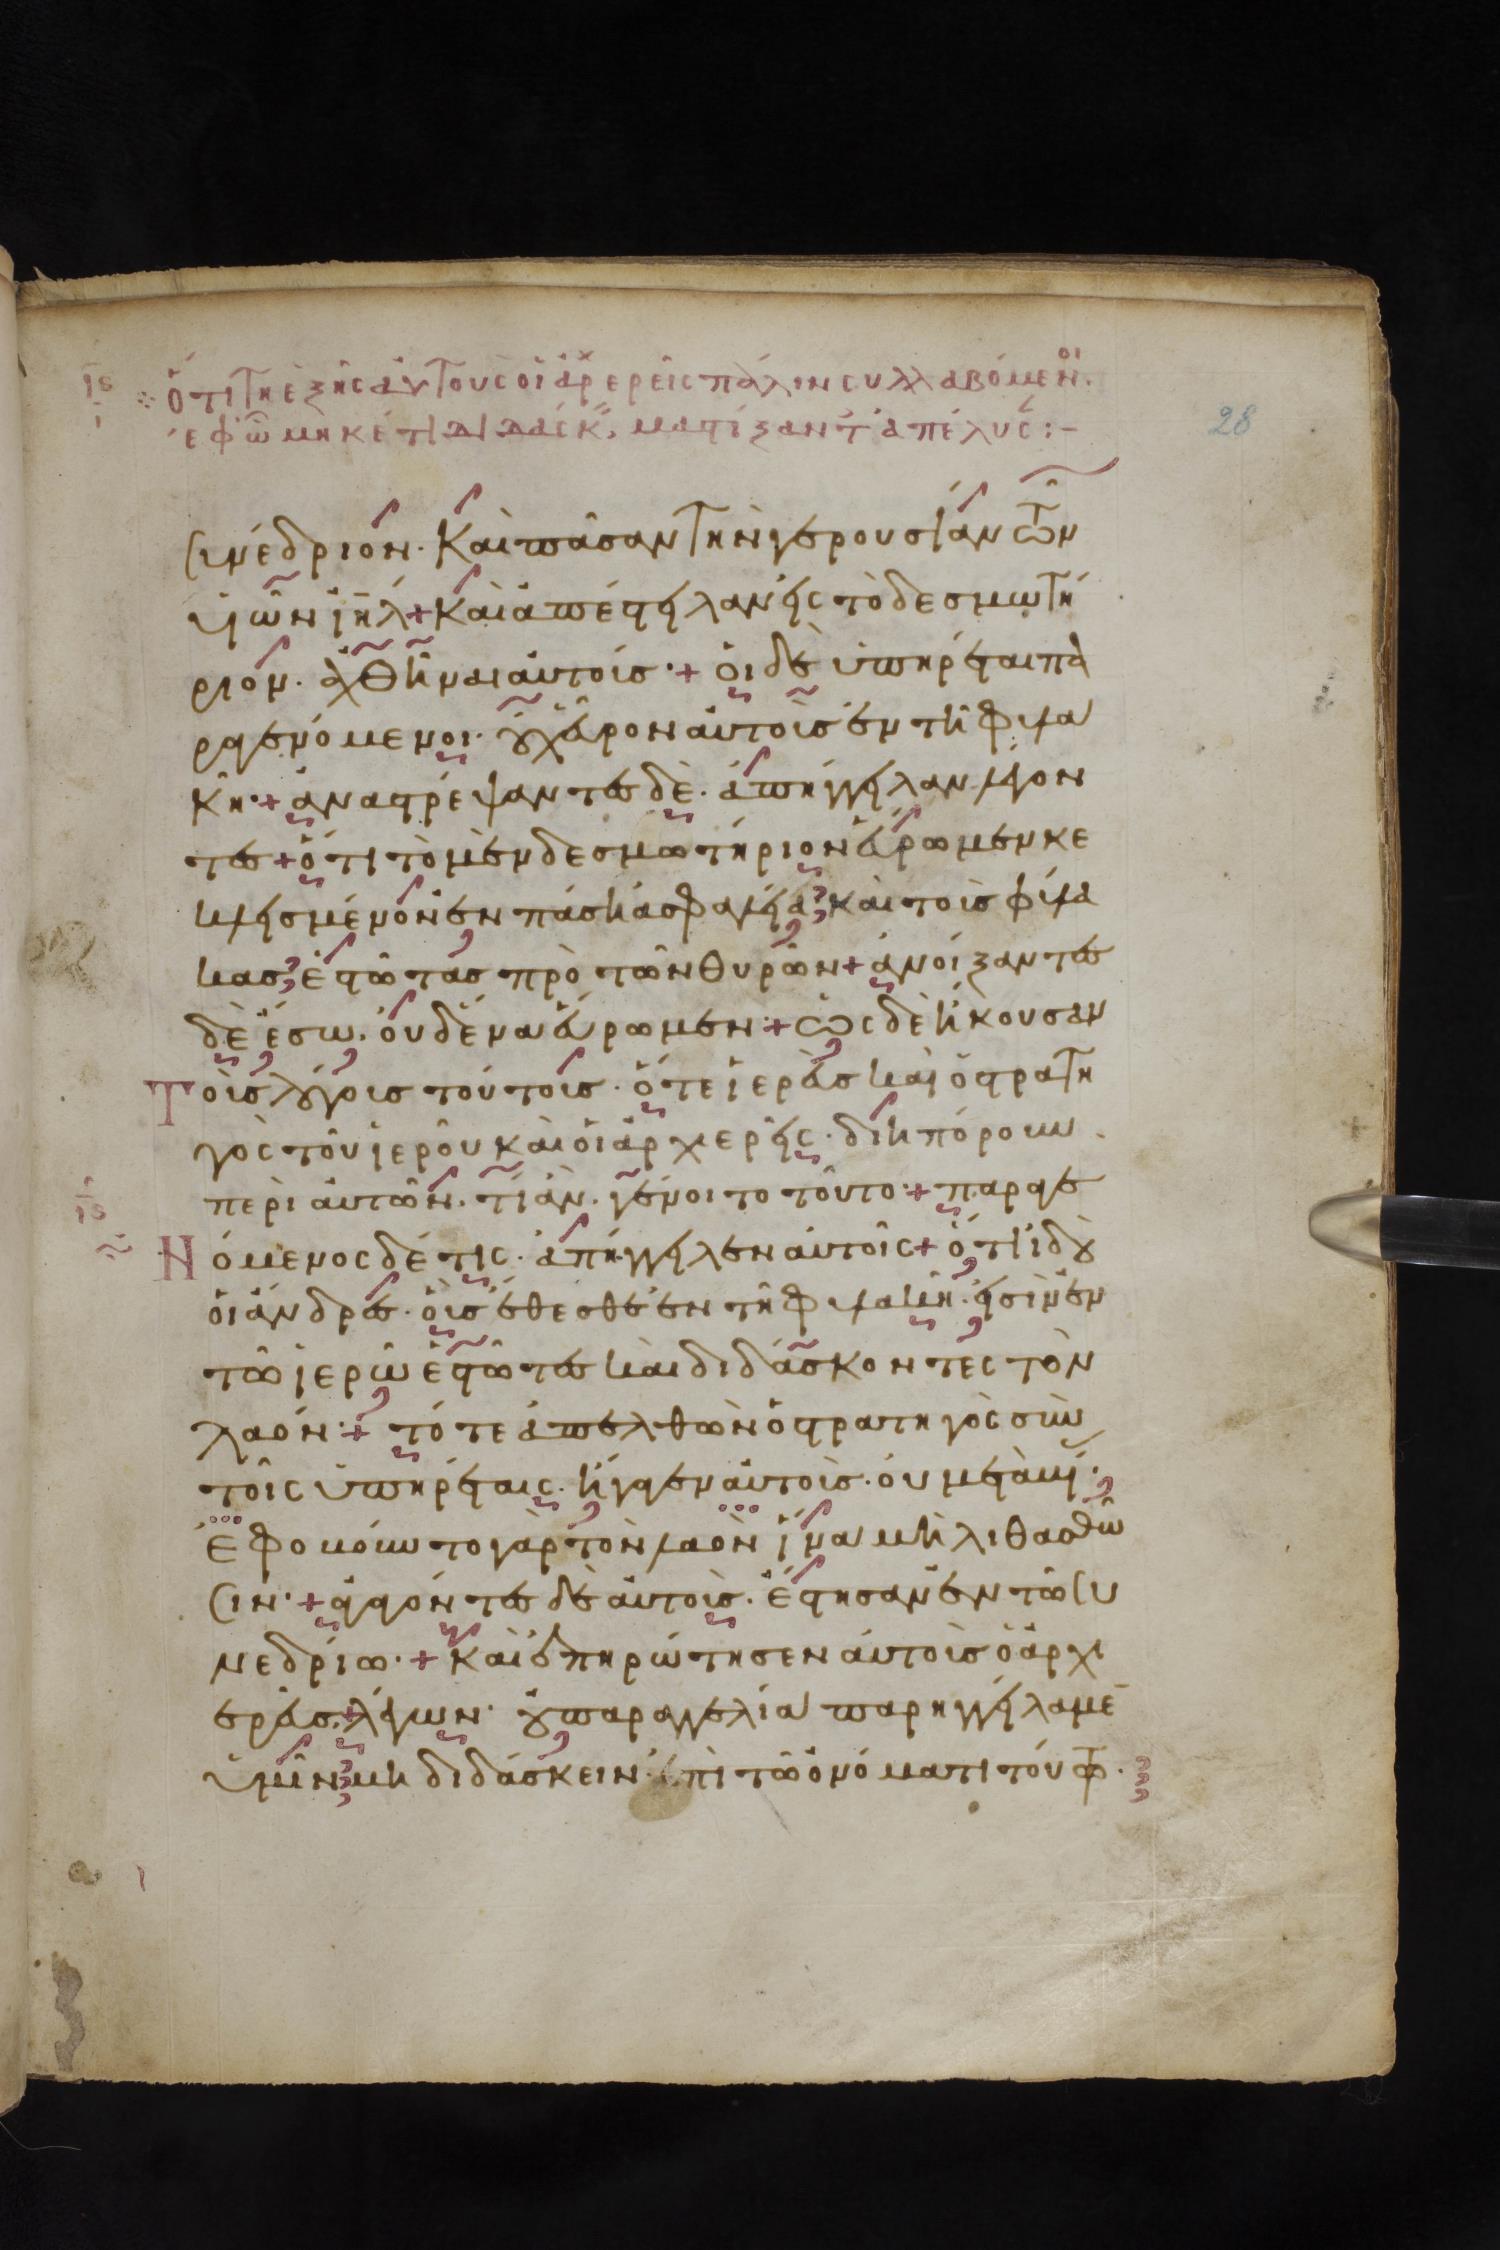 ὅτι τῆ ἑξῆς αὐτοὺς οἱ ἀρχερεῖς πάλιν συλλαβόμενοι.
ἐφ ὧ μηκέτι διδάσκ, μαστίξαντ ἀπέλυσ:-
28
συνέδριον· καὶ πᾶσαν τὴν γερουσίαν τῶν
υἱῶν ιηλ + καὶ ἀπέστειλαν εἰς τὸ δεσμωτή
ριον. ἀχθῆναι αὐτούς· + οἱ δὲ ὑπηρέται πα
ραγενόμενοι· οὐχ εὗρον αὐτοὺς ἐν τῆ φυλα
κῆ· + ἀναστρέψαντες δὲ· ἀπήγγειλαν λέγον
τες + ὅτι τὸ μὲν δεσμωτήριον εὕρωμεν κε
κλεισμένον ἐν πάση ἀσφαλεία, καὶ τοὺς φύλα
κας, ἑστῶτας πρὸ τῶν θυρῶν + ἀνοίξαντες
δὲ ἔσω. οὐδένα εὕρωμεν· + ὡς δὲ ἤκουσαν
Τοὺς λόγους τούτους· ὅ τε ἱερεὺς καὶ ὁ στρατη
γὸς τοῦ ἱεροῦ καὶ οἱ ἀρχιερεῖς· διηπόρουν
περὶ αὐτῶν· τί ἂν· γένοιτο τοῦτο· + παραγε
Νόμενος δέ τις· ἀπήγγειλεν αὐτοῖς + ὅτι ἰδοὺ
οἱ ἄνδρες· οὓς ἔθεσθε ἐν τῆ φυλακῆ· εἰσὶν ἐν
τῶ ἱερῶ ἑστῶτες καὶ διδάσκοντες τὸν
λαόν· + τότε ἀπελθὼν ὁ στρατηγὸς σὺν
τοῖς ὑπηρέταις· ἤγαγεν αὐτοὺς· οὐ μετὰ βί·
Ἐφοβοῦντο γὰρ τὸν λαὸν ἵνα μὴ λιθασθῶ
σιν· + ἀγαγόντες δὲ αὐτοὺς· ἔστησαν ἐν τῶ συ
νεδρίω· + καὶ ἐπηρώτησεν αὐτοὺς ὁ ἀρχι
ερεὺς, λέγων· οὐ παραγγελία παρηγγείλαμε
ὑμῖν, μὴ διδάσκειν ἐπὶ τῶ ὀνόματι τούτω·